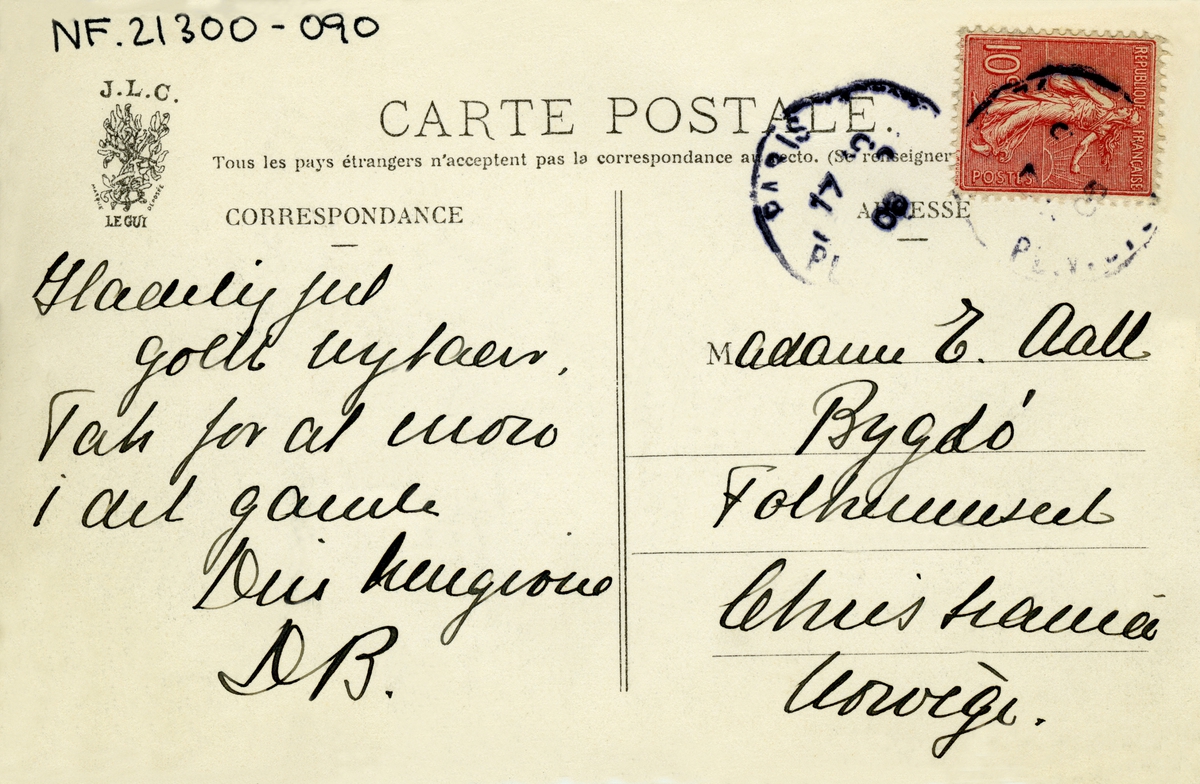 NF.21300-090
J.L.C.
LE GUI
CARTE POSTALE.
Tous les pays étrangers n'acceptent pas la correspondance au recto. (Se renseigner
CORRESPONDANCE
ADRESSE
10
REPUBLIQUE FRANÇAISE
POSTES
PARIS
17
Glædelig jul
godt nytaar,
Tak for al moro
i det gamle
Din hengivne
D B.
Madame E. Aall
Bygdö
Folkemuseet
Christiania
Norvège.